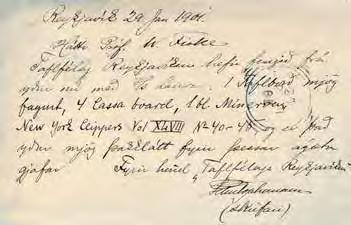 Reykjavík 29 Jan 1901.
Hátt. Próf. W. Fiske
Taflfélag Reykjavíkur hefir fengið frá
yður nú með 1 Taflborð mjög
fagurt, 4 Cassa board, 1 bl.
New York Clippers Vol XLVIII No 40-48, og er það
yður mjög þakklátt fyrir þessar ágætu
gjafar Fyrir hönd „Taflfélags Reykjavíkur"
(skrifari)